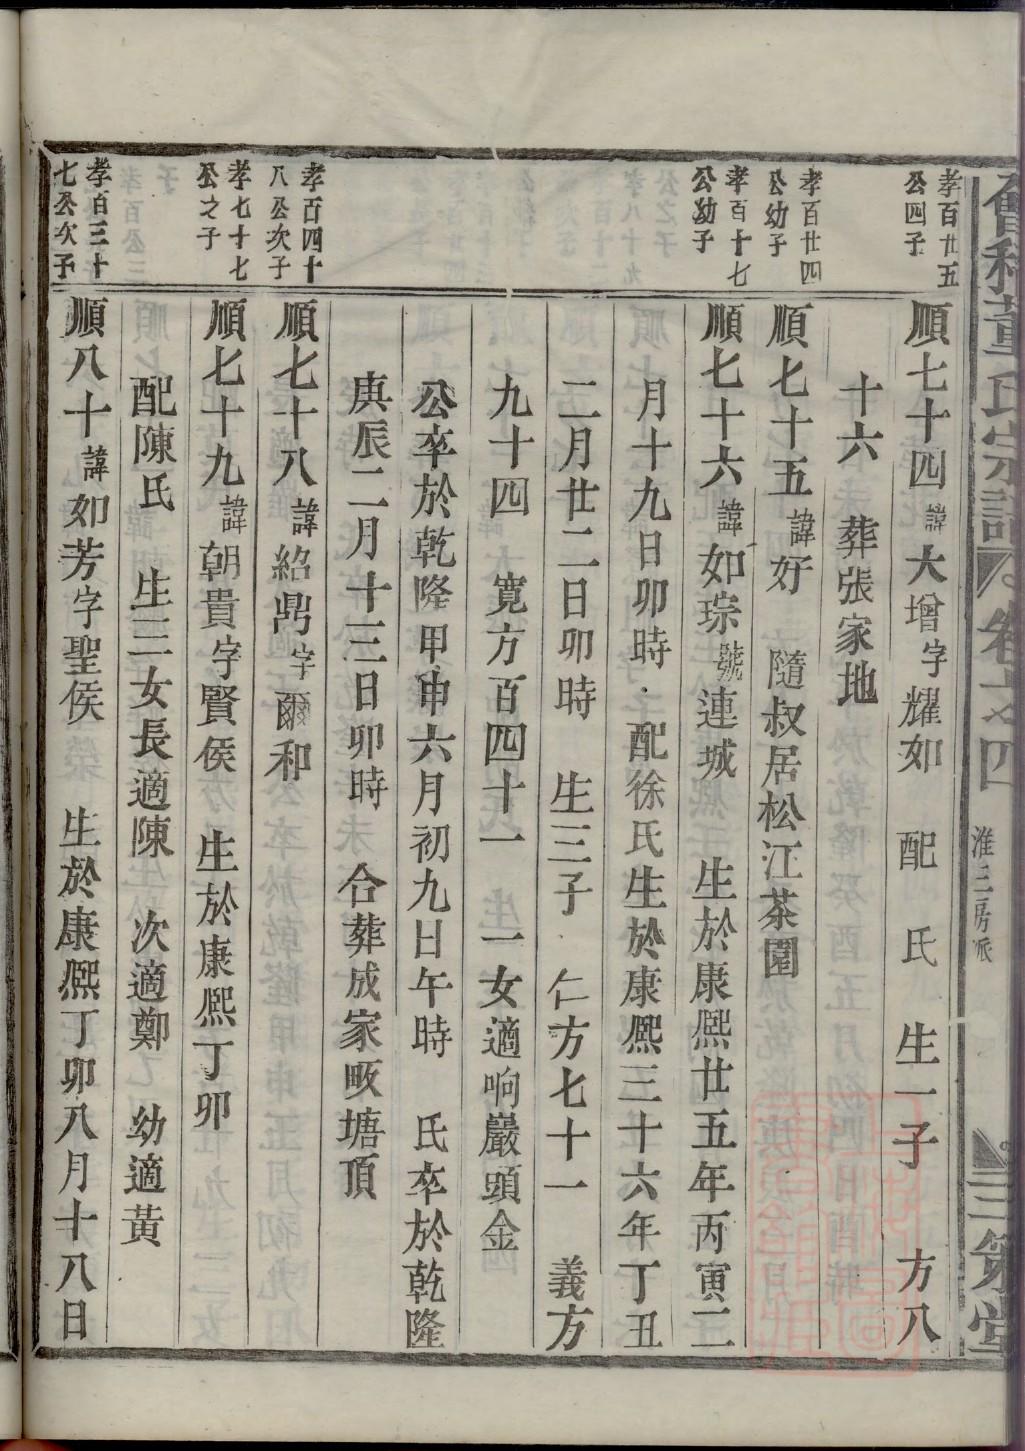 會稽董氏宗譜 卷之四 淮三房派 三策堂
孝百廿五
公四子
順七十四諱大增字耀如 配 氏 生一子 方八
十六 葬張家地
孝百廿四
公幼子
順七十五諱好 隨叔居松江茶園
孝百十七
公幼子
順七十六諱如琮號連城 生於康熙廿五年丙寅二
月十九日卯時 配徐氏生於康熙三十六年丁丑
二月廿二日卯時 生三子 仁方七十一 義方
九十四 寬方百四十一 生一女適响巖頭金
公卒於乾隆甲申六月初九日午時 氏卒於乾隆
庚辰二月十三日卯時 合葬成家畈塘頂
孝百四十
八公次子
順七十八諱紹鼎字爾和
孝七十七
公之子
順七十九諱朝貴字賢侯 生於康熙丁卯
配陳氏 生三女長適陳 次適鄭 幼適黃
孝百三十
七公次子
順八十諱如芳字聖侯 生於康熙丁卯八月十八日